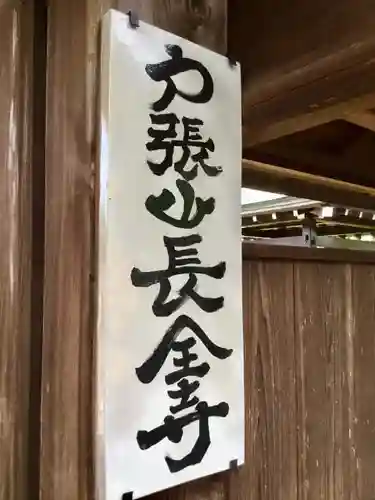 力張山長全寺